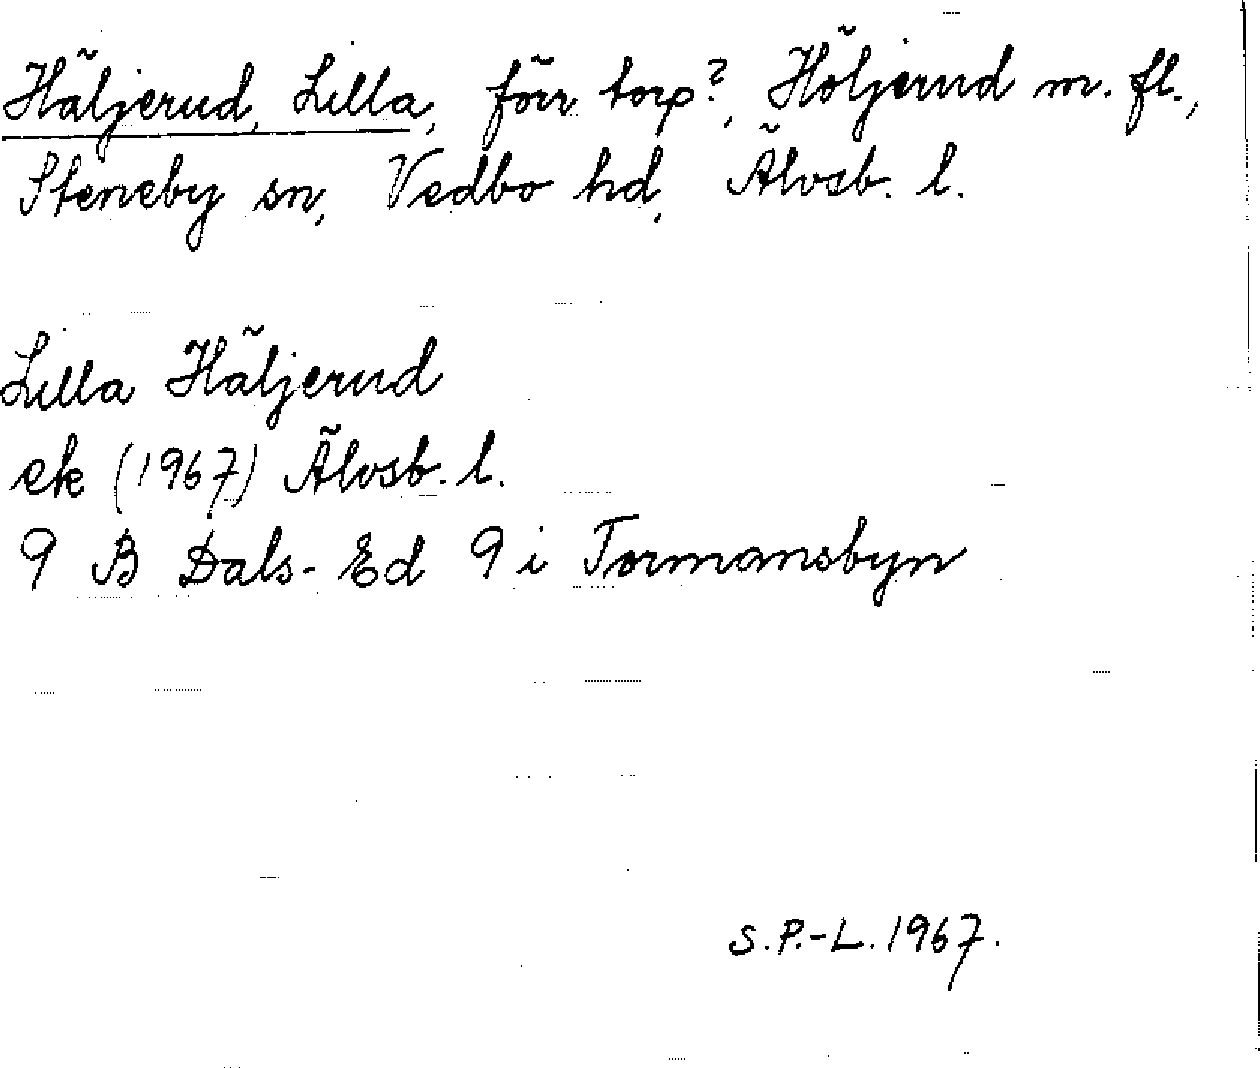 Häljerud, Lilla, förr torp?, Höljerud m. fl.,
Steneby sn, Vedbo hd, Älvsb. l.
Lilla Häljerud
ek (1967) Älvsb. l.
9 B Dals-Ed 9 i Tormansbyn
S.P.-L. 1967.